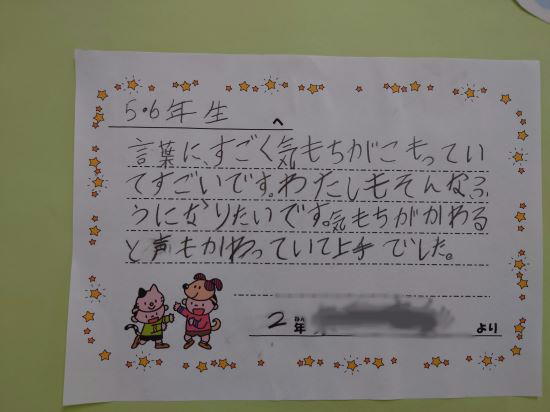 5・6年生 へ
言葉に、すごく気もちがこもってい
てすごいです。わたしもそんなふ
うになりたいです。気もちがかわる
と声もかわっていて上手でした。
2年 より